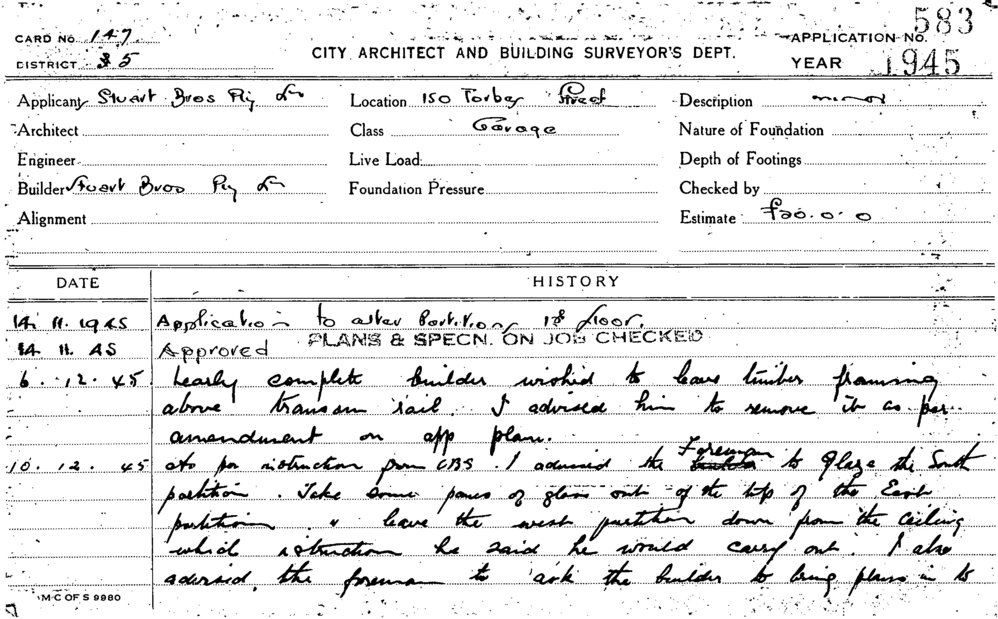 CARD No. 147
DISTRICT 35
CITY ARCHITECT AND BUILDING SURVEYOR'S DEPT.
APPLICATION No. 583
YEAR 1945
Applicant Stuart Bros Pty Location 150 Forbes Street Description minor
Architect Class Garage Nature of Foundation
Engineer Live Load Depth of Footings
Builder Stuart Bros Pty Foundation Pressure Checked by
Alignment Estimate £20.0.0
DATE HISTORY
14. 11. 1945 Application to alter Partition, 1st floor.
14. 11. 45 Approved PLANS & SPECN. ON JOB CHECKED
6. 12. 45 Nearly complete builder wished to leave timber framing
above transom rail. I advised him to remove it as per
amendment on app plan.
10. 12. 45 per instruction from CBS. I advised the Foreman to Glaze the South
partition. Take some panes of glass out of the top of the East
partition " leave the west partition down from the ceiling
which istruction he said he would carry out. I also
advised the foreman to ask the builder to bring plans in to
M C OF S 9980